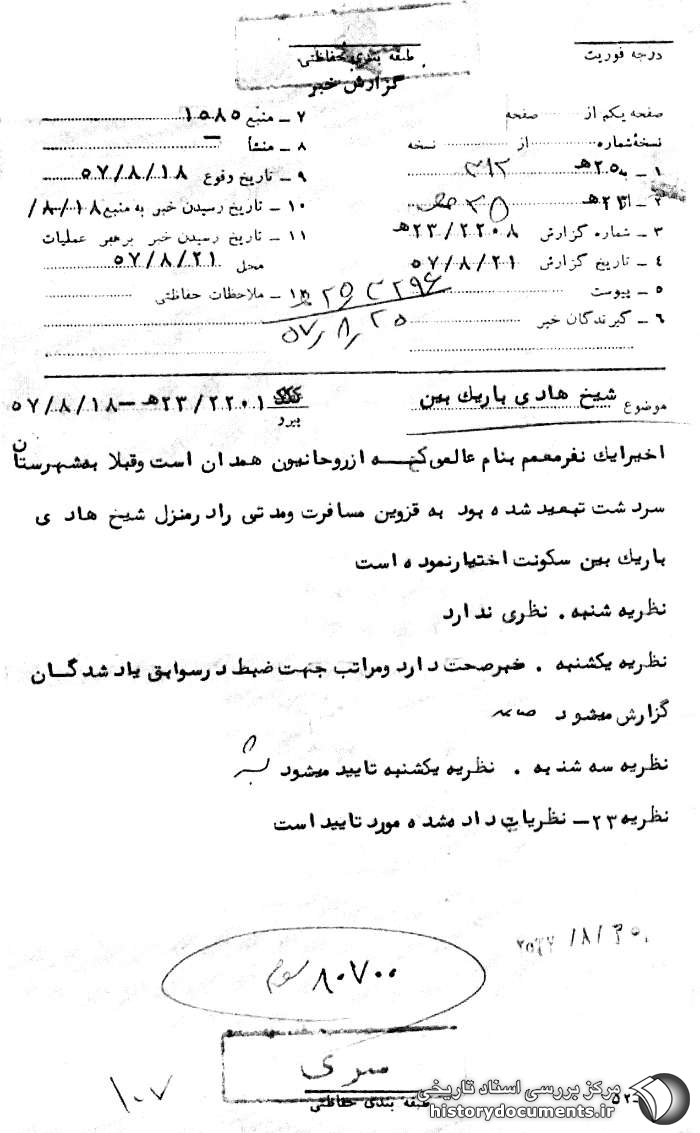 درجه فوریت
طبقه بندی حفاظتی
گزارش خبر
صفحه یکم از صفحه
نسخهٔ شماره از نسخه
۱ ـ به ۲۵ هـ ۳۱۲
۲ ـ از ۲۳ هـ
۳ ـ شماره گزارش ۲۳/۲۲۰۸ هـ
۴ ـ تاریخ گزارش ۵۷/۸/۲۱
۵ ـ پیوست
۶ ـ گیرندگان خبر
۷ ـ منبع ۱۵۸۵
۸ ـ منشأ ـ
۹ ـ تاریخ وقوع ۵۷/۸/۱۸
۱۰ ـ تاریخ رسیدن خبر به منبع ۸/۱۸/
۱۱ ـ تاریخ رسیدن خبر برهبر عملیات
محل ۵۷/۸/۲۱
ملاحظات حفاظتی
۵۷/۸/۲۵
موضوع شیخ هادی باریک بین
پیرو ۲۳/۲۲۰۱ هـ ـ ۵۷/۸/۱۸
اخیرا یک نفر معمم بنام عالمی که از روحانیون همدان است و قبلا به شهرستان
سردشت تبعید شده بود به قزوین مسافرت و مدتی را در منزل شیخ هادی
باریک بین سکونت اختیار نموده است
نظریه شنبه . نظری ندارد
نظریه یکشنبه . خبر صحت دارد و مراتب جهت ضبط در سوابق یاد شدگان
گزارش میشود
نظریه سه شنبه . نظریه یکشنبه تایید میشود
نظریه ۲۳ ـ نظریات داده شده مورد تایید است
۸۰۷۰۰ سوم
سری
طبقه بندی حفاظتی
۱۰۷
مرکز بررسی اسناد تاریخی
historydocuments.ir